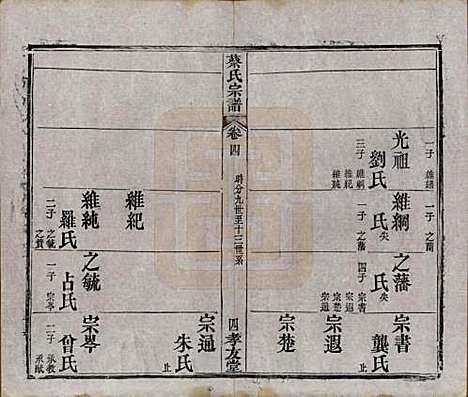 一子 維綱
光祖
劉氏
三子 維綱 維紀 維純
一子 之藩
維綱
氏 失
一子 之藩
之藩
氏 失
四子 宗書 宗遐 宗楚 宗通
宗書
龔氏
止
宗遐
止
宗楚
宗通
朱氏
止
蔡氏宗譜
卷四
時分九世至十三世系
四 孝友堂
維紀
維純
羅氏
二子 之毓 之贊
之毓
占氏
一子 宗岑
宗岑
曾氏
二子 承教 承猷